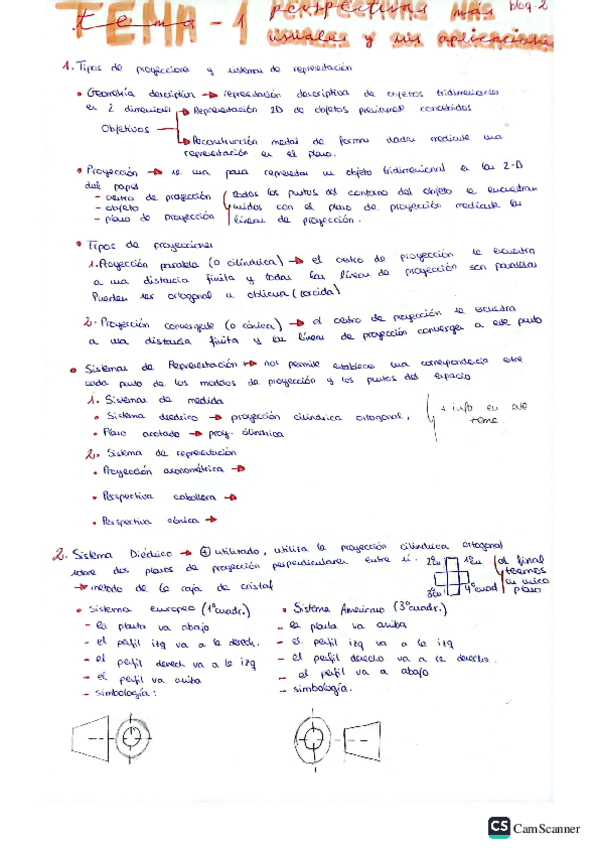 TEMA - 1 perspectivas más bloq. 2
usuales y sus aplicaciones
1. Tipos de proyecciones y sistemas de representación
• Geometría descriptiva → representación descriptiva de objetos tridimensionales
en 2 dimensiones → Representación 2D de objetos previamente concebidos
Objetivos
→ Reconstrucción mental de formas dadas mediante una
representación en el plano.
• Proyección → se usa para representar un objeto tridimensional en las 2-D
del papel
- centro de proyección
- objeto
- plano de proyección
todos los puntos del contorno del objeto se encuentran
unidos con el plano de proyección mediante las
líneas de proyección.
• Tipos de proyecciones
1. Proyección paralela (o cilíndrica) → el centro de proyección se encuentra
a una distancia finita y todas las líneas de proyección son paralelas
Pueden ser ortogonal u oblicua (torcida)
2. Proyección convergente (o cónica) → el centro de proyección se encuentra
a una distancia finita y las líneas de proyección converger a este punto
• Sistemas de Representación → nos permite establecer una correspondencia entre
cada punto de los modelos de proyección y los puntos del espacio
1. Sistemas de medida
• Sistema diédrico → proyección cilíndrica ortogonal.
• Plano acotado → proy. cilíndrica
+ info en este
tema
2. Sistema de representación
• Proyección axonométrica →
• Perspectiva caballera →
• Perspectiva cónica →
2. Sistema Diédrico → + utilizado, utiliza la proyección cilíndrica ortogonal
sobre dos planos de proyección perpendiculares entre sí.
→ método de la caja de cristal
4º cuad
al final
tenemos
un único
plano
• Sistema europeo (1º cuadr.)
- la planta va abajo
- el perfil izq va a la derech.
- el perfil derech va a la izq
- el perfil va arriba
- simbología:
• Sistema Americano (3º cuadr.)
- la planta va arriba
- el perfil izq va a la izq
- el perfil derecho va a la derecha.
- el perfil va a abajo
- simbología.
CS CamScanner